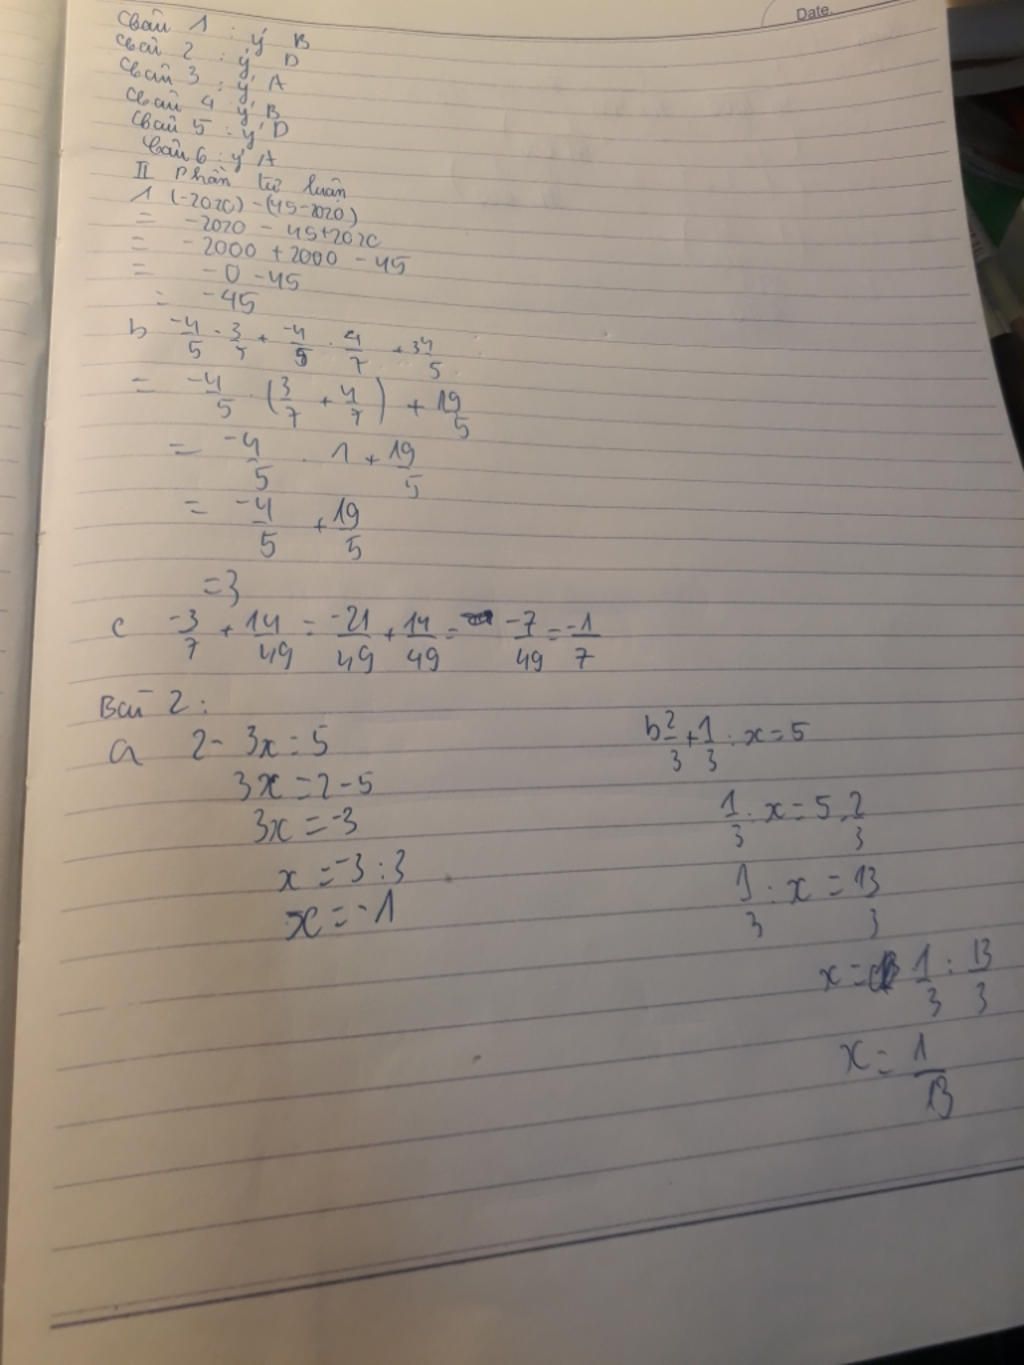 Date.
Câu 1 : ý B
Câu 2 : ý D
Câu 3 : ý A
Câu 4 ý B
Câu 5 : ý D
Câu 6 : ý A
II Phần tự luận
1 (-2020) - (45-2020)
= -2020 - 45+2020
= -2000 + 2000 - 45
= -0 - 45
= -45
b -4/5 . 3/7 + -4/5 . 4/7 + 3 4/5
= -4/5 . (3/7 + 4/7) + 19/5
= -4/5 . 1 + 19/5
= -4/5 + 19/5
=3
c -3/7 + 14/49 = -21/49 + 14/49 = -7/49 = -1/7
Bài 2 :
a 2- 3x = 5
3x = 2-5
3x = -3
x = -3 : 3
x = -1
b 2/3 + 1/3 : x = 5
1/3 : x = 5 - 2/3
1/3 : x = 13/3
x = 1/3 : 13/3
x = 1/13